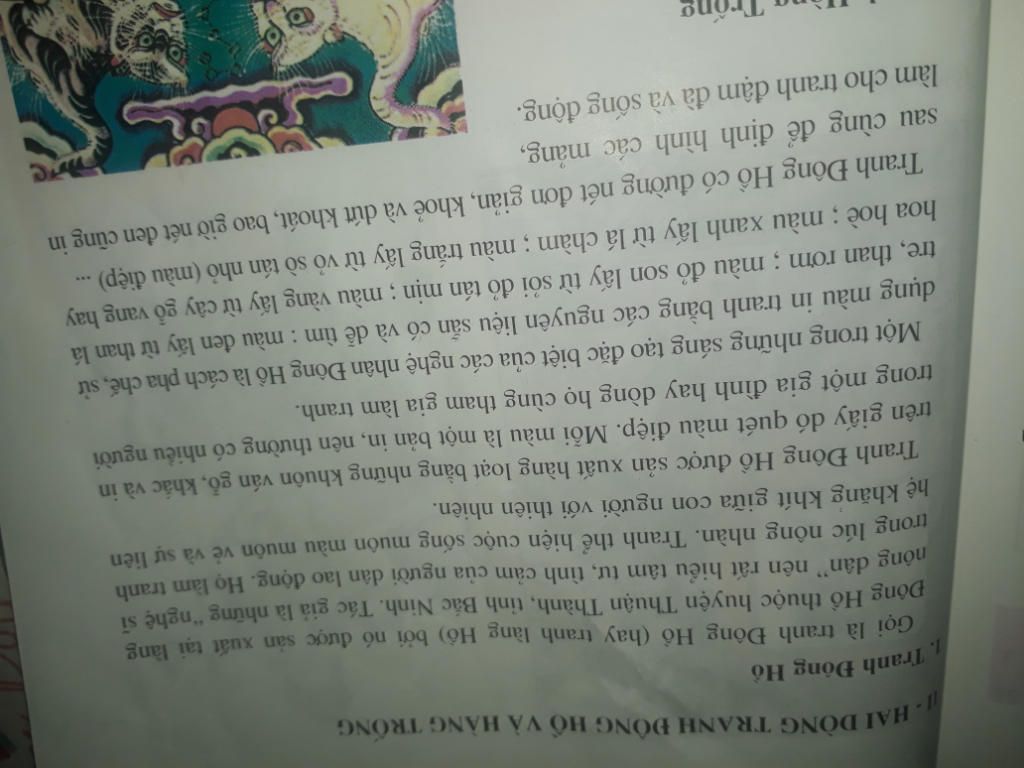 II - HAI DÒNG TRANH ĐÔNG HỒ VÀ HÀNG TRỐNG
1. Tranh Đông Hồ
Gọi là tranh Đông Hồ (hay tranh làng Hồ) bởi nó được sản xuất tại làng
Đông Hồ thuộc huyện Thuận Thành, tỉnh Bắc Ninh. Tác giả là những "nghệ sĩ
nông dân" nên rất hiểu tâm tư, tình cảm của người dân lao động. Họ làm tranh
trong lúc nông nhàn. Tranh thể hiện cuộc sống muôn màu muôn vẻ và sự liên
hệ khăng khít giữa con người với thiên nhiên.
Tranh Đông Hồ được sản xuất hàng loạt bằng những khuôn ván gỗ, khắc và in
trên giấy dó quét màu điệp. Mỗi màu là một bản in, nên thường có nhiều người
trong một gia đình hay dòng họ cùng tham gia làm tranh.
Một trong những sáng tạo đặc biệt của các nghệ nhân Đông Hồ là cách pha chế, sử
dụng màu in tranh bằng các nguyên liệu sẵn có và dễ tìm : màu đen lấy từ than lá
tre, than rơm ; màu đỏ son lấy từ sỏi đỏ tán mịn ; màu vàng lấy từ cây gỗ vang hay
hoa hoè ; màu xanh lấy từ lá chàm ; màu trắng lấy từ vỏ sò tán nhỏ (màu điệp) ...
Tranh Đông Hồ có đường nét đơn giản, khoẻ và dứt khoát, bao giờ nét đen cũng in
sau cùng để định hình các mảng,
làm cho tranh đậm đà và sống động.
Hàng Trống